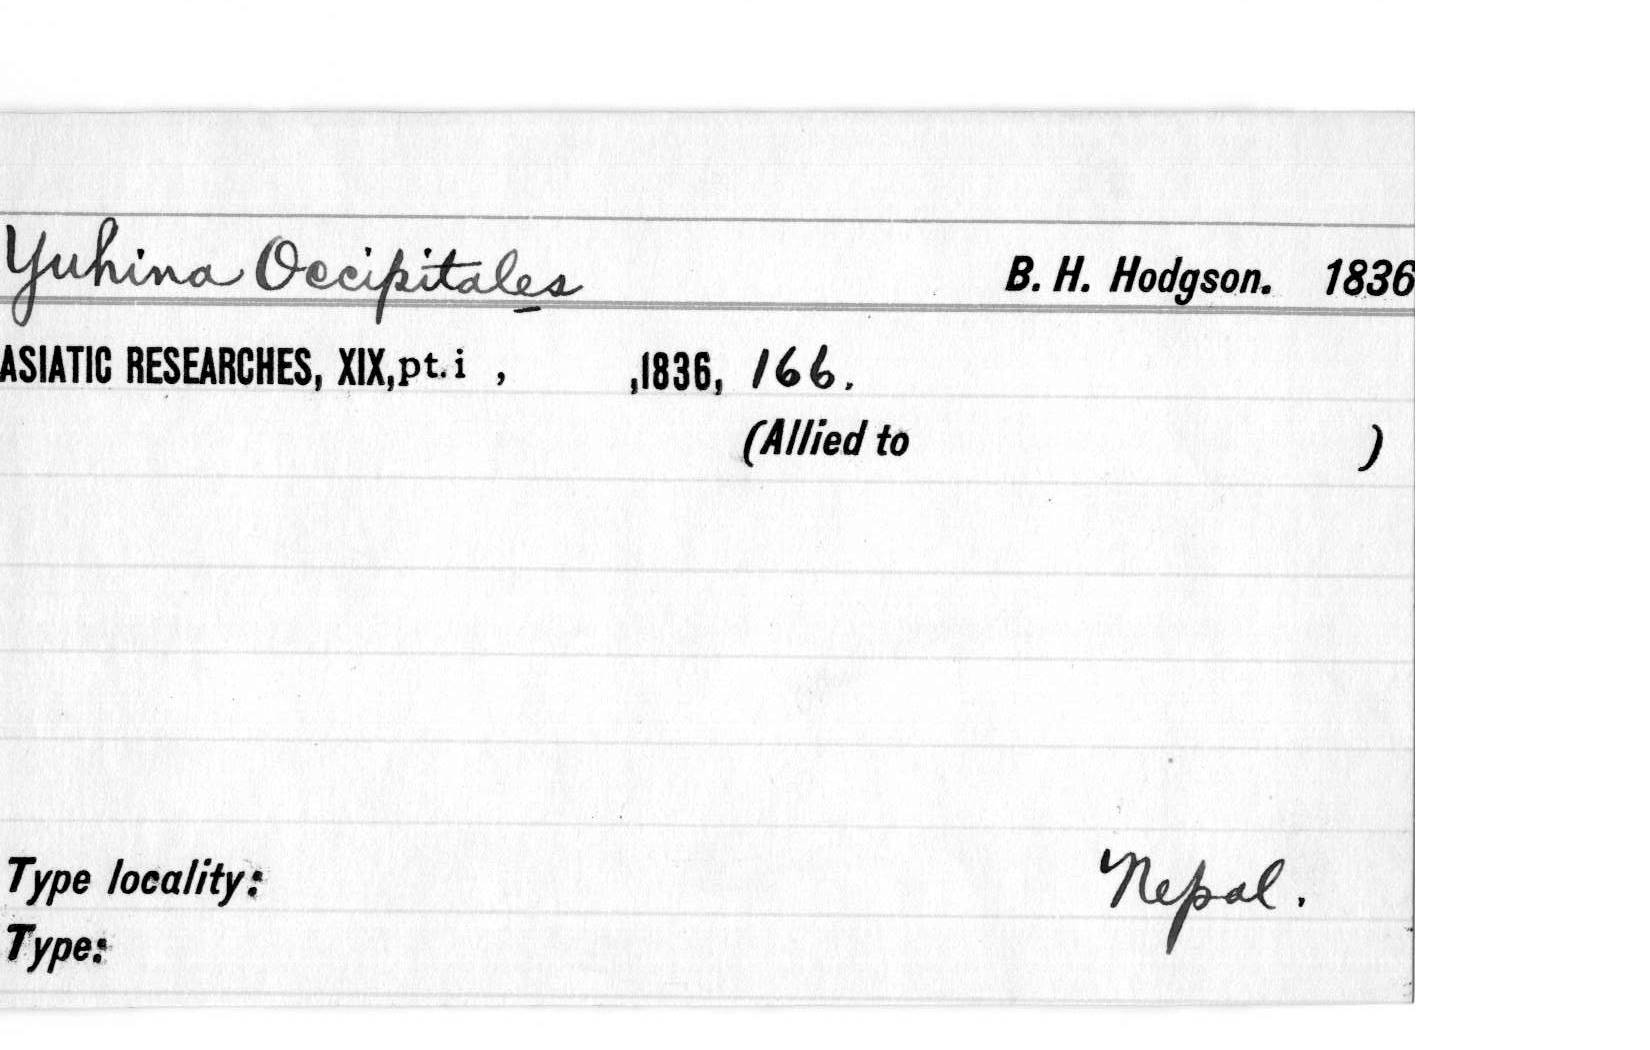 Yuhina Occipitales B. H. Hodgson. 1836
ASIATIC RESEARCHES, XIX, pt. i , ,1836, 166.
(Allied to )
Type locality: Nepal.
Type: